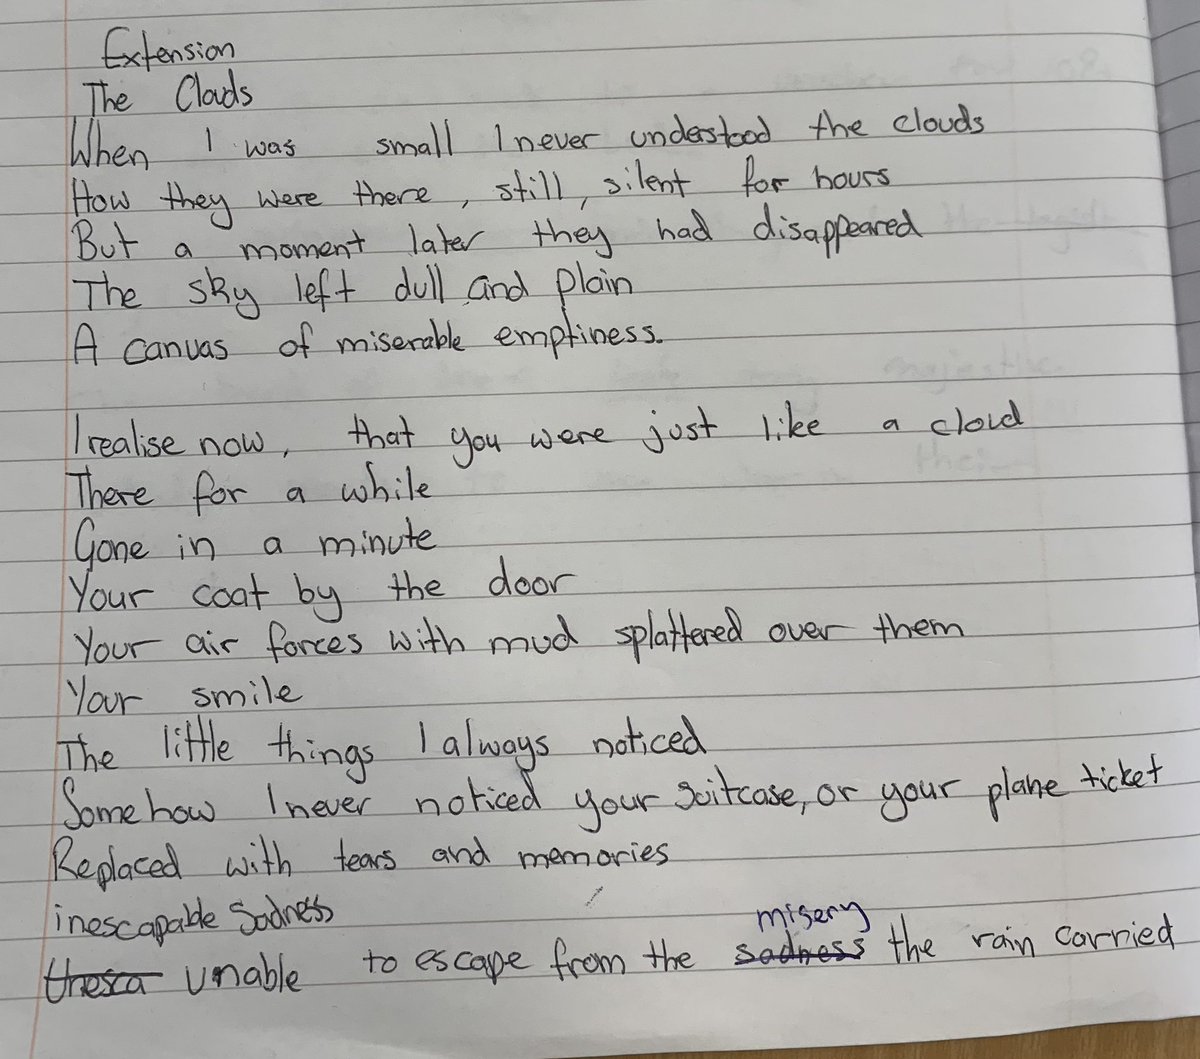 Extension
The Clouds
When I was small I never understood the clouds
How they were there, still, silent for hours
But a moment later they had disappeared
The sky left dull and plain
A canvas of miserable emptiness.
I realise now, that you were just like a cloud
There for a while
Gone in a minute
Your coat by the door
Your air forces with mud splattered over them
Your smile
The little things I always noticed
Somehow I never noticed your suitcase, or your plane ticket
Replaced with tears and memories
inescapable Sadness
misery
unable to escape from the sadness the rain carried